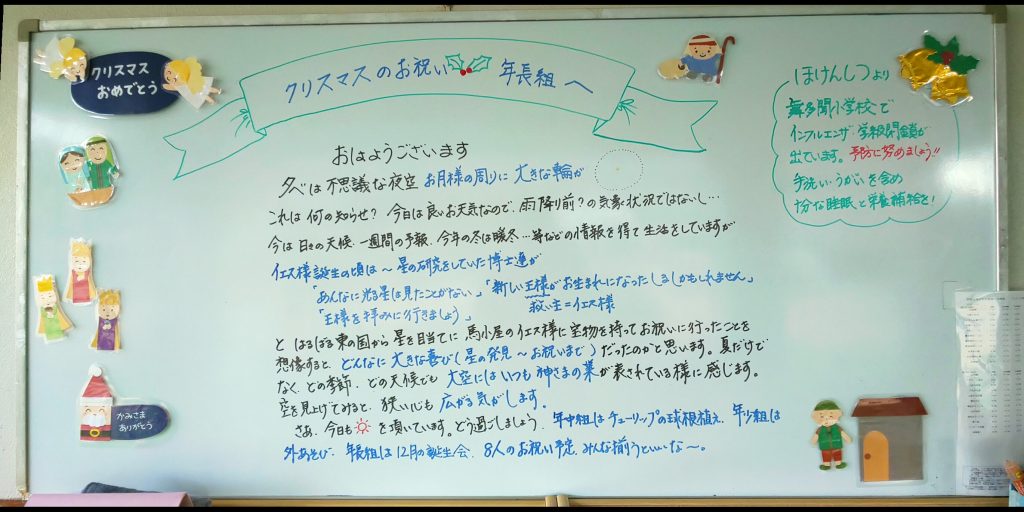 クリスマス
おめでとう
クリスマスのお祝い 年長組へ
おはようございます
夕べは不思議な夜空 お月様の周りに大きな輪が
これは何の知らせ? 今日は良いお天気なので、雨降り前?の気象状況ではないし…
今は日々の天候、一週間の予報、今年の冬は暖冬…等などの情報を得て生活をしていますが
イエス様誕生の頃は〜星の研究をしていた博士達が
「あんなに光る星は見たことがない」「新しい王様がお生まれになったしるしかもしれません」
「王様を拝みに行きましょう」 救い主=イエス様
と はるばる東の国から星を目当てに馬小屋のイエス様に宝物を持ってお祝いに行ったことを
想像すると、どんなに大きな喜び(星の発見〜お祝いまで)だったのかと思います。夏だけで
なく、どの季節、どの天候でも 大空にはいつも神さまの業が表されている様に感じます。
空を見上げてみると、狭い心も 広がる気がします。
さあ、今日も を頂いています。どう過ごしましょう、年中組はチューリップの球根植え、年少組は
外あそび、年長組は12月の誕生会、8人のお祝い予定、みんな揃うといいな〜。
ほけんしつより
舞多聞小学校で
インフルエンザ 学級閉鎖が
出ています。予防に努めましょう!!
手洗い・うがいを含め
十分な睡眠と栄養補給を!
かみさま
ありがとう